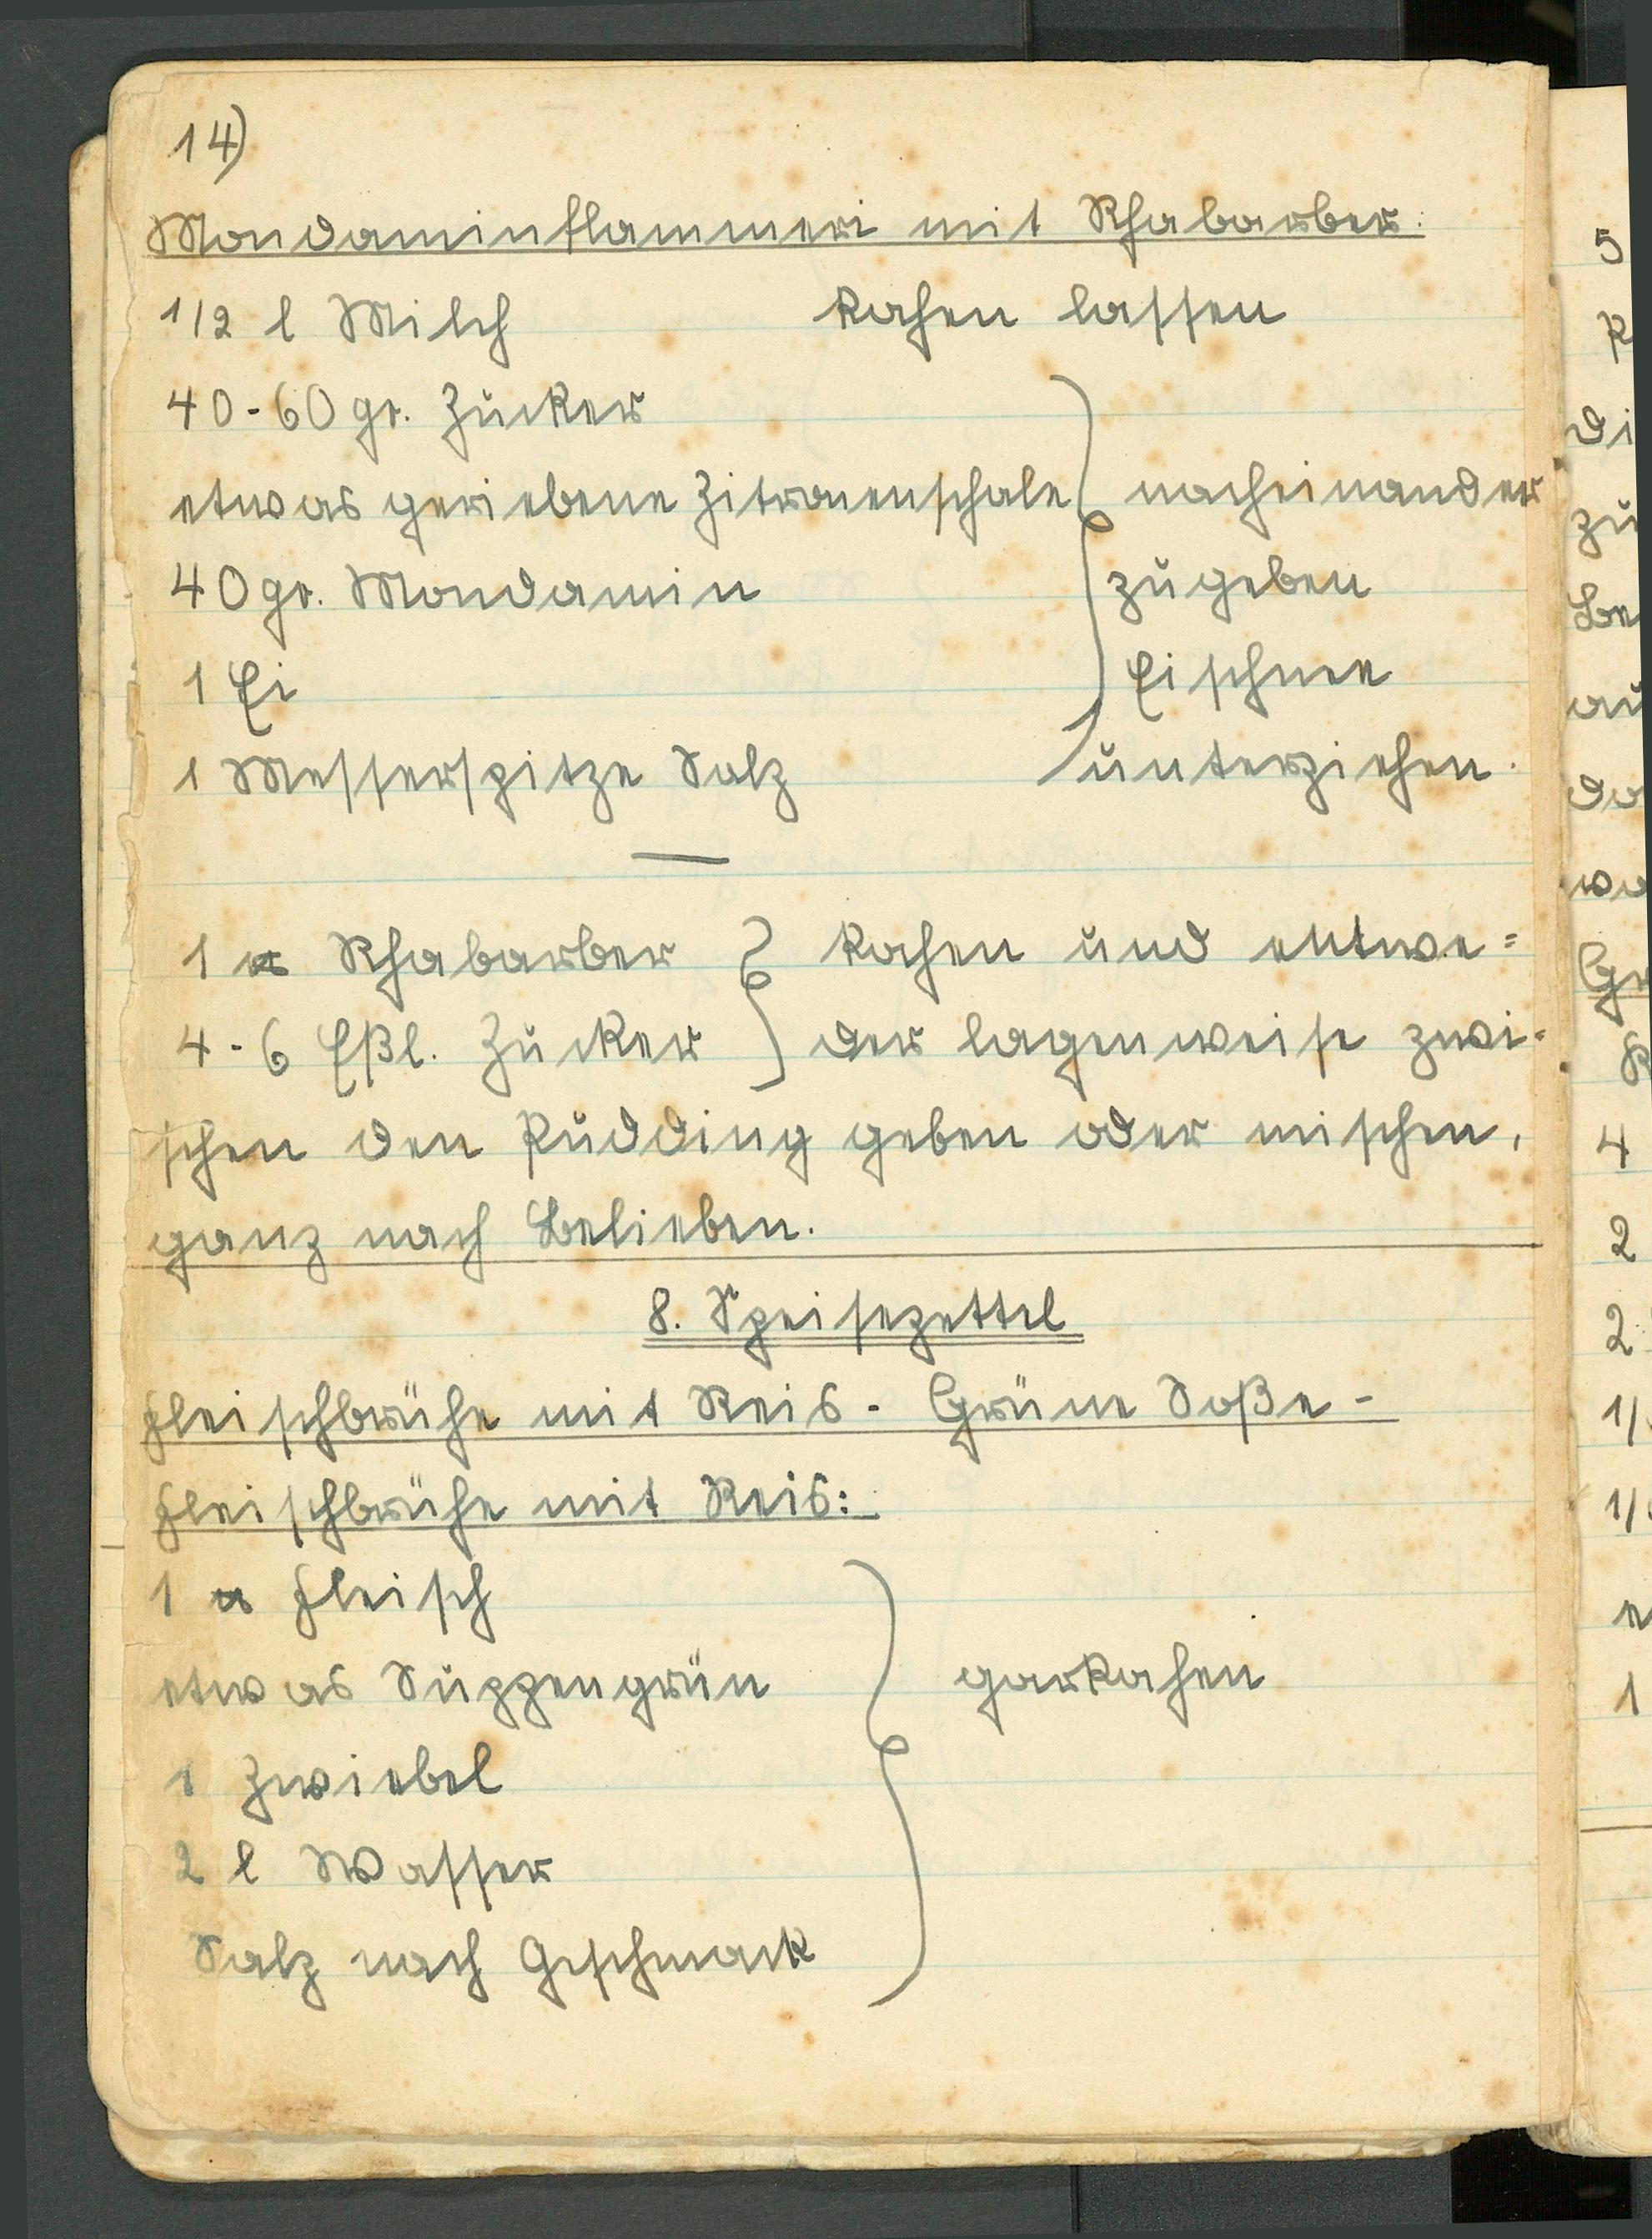 14)
Mondaminflammeri mit Rhabarber:
1/2 l Milch kochen lassen
40-60 gr. Zucker
etwas geriebene Zitronenschale nacheinander
40 gr. Mondamin zugeben
1 Ei Eischnee
1 Messerspitze Salz unterziehen.
1 ℔ Rhabarber kochen und entwe=
4-6 Eßl. Zucker der lagenweise zwi=
schen den Pudding geben oder mischen,
ganz nach Belieben.
8. Speisezettel
Fleischbrühe mit Reis - Grüne Soße -
Fleischbrühe mit Reis:
1 ℔ Fleisch
etwas Suppengrün garkochen
1 Zwiebel
2 l Wasser
Salz nach Geschmack
5
di
zu
Be
au
da
wa
Ge
4
2
2
1/
1/
1